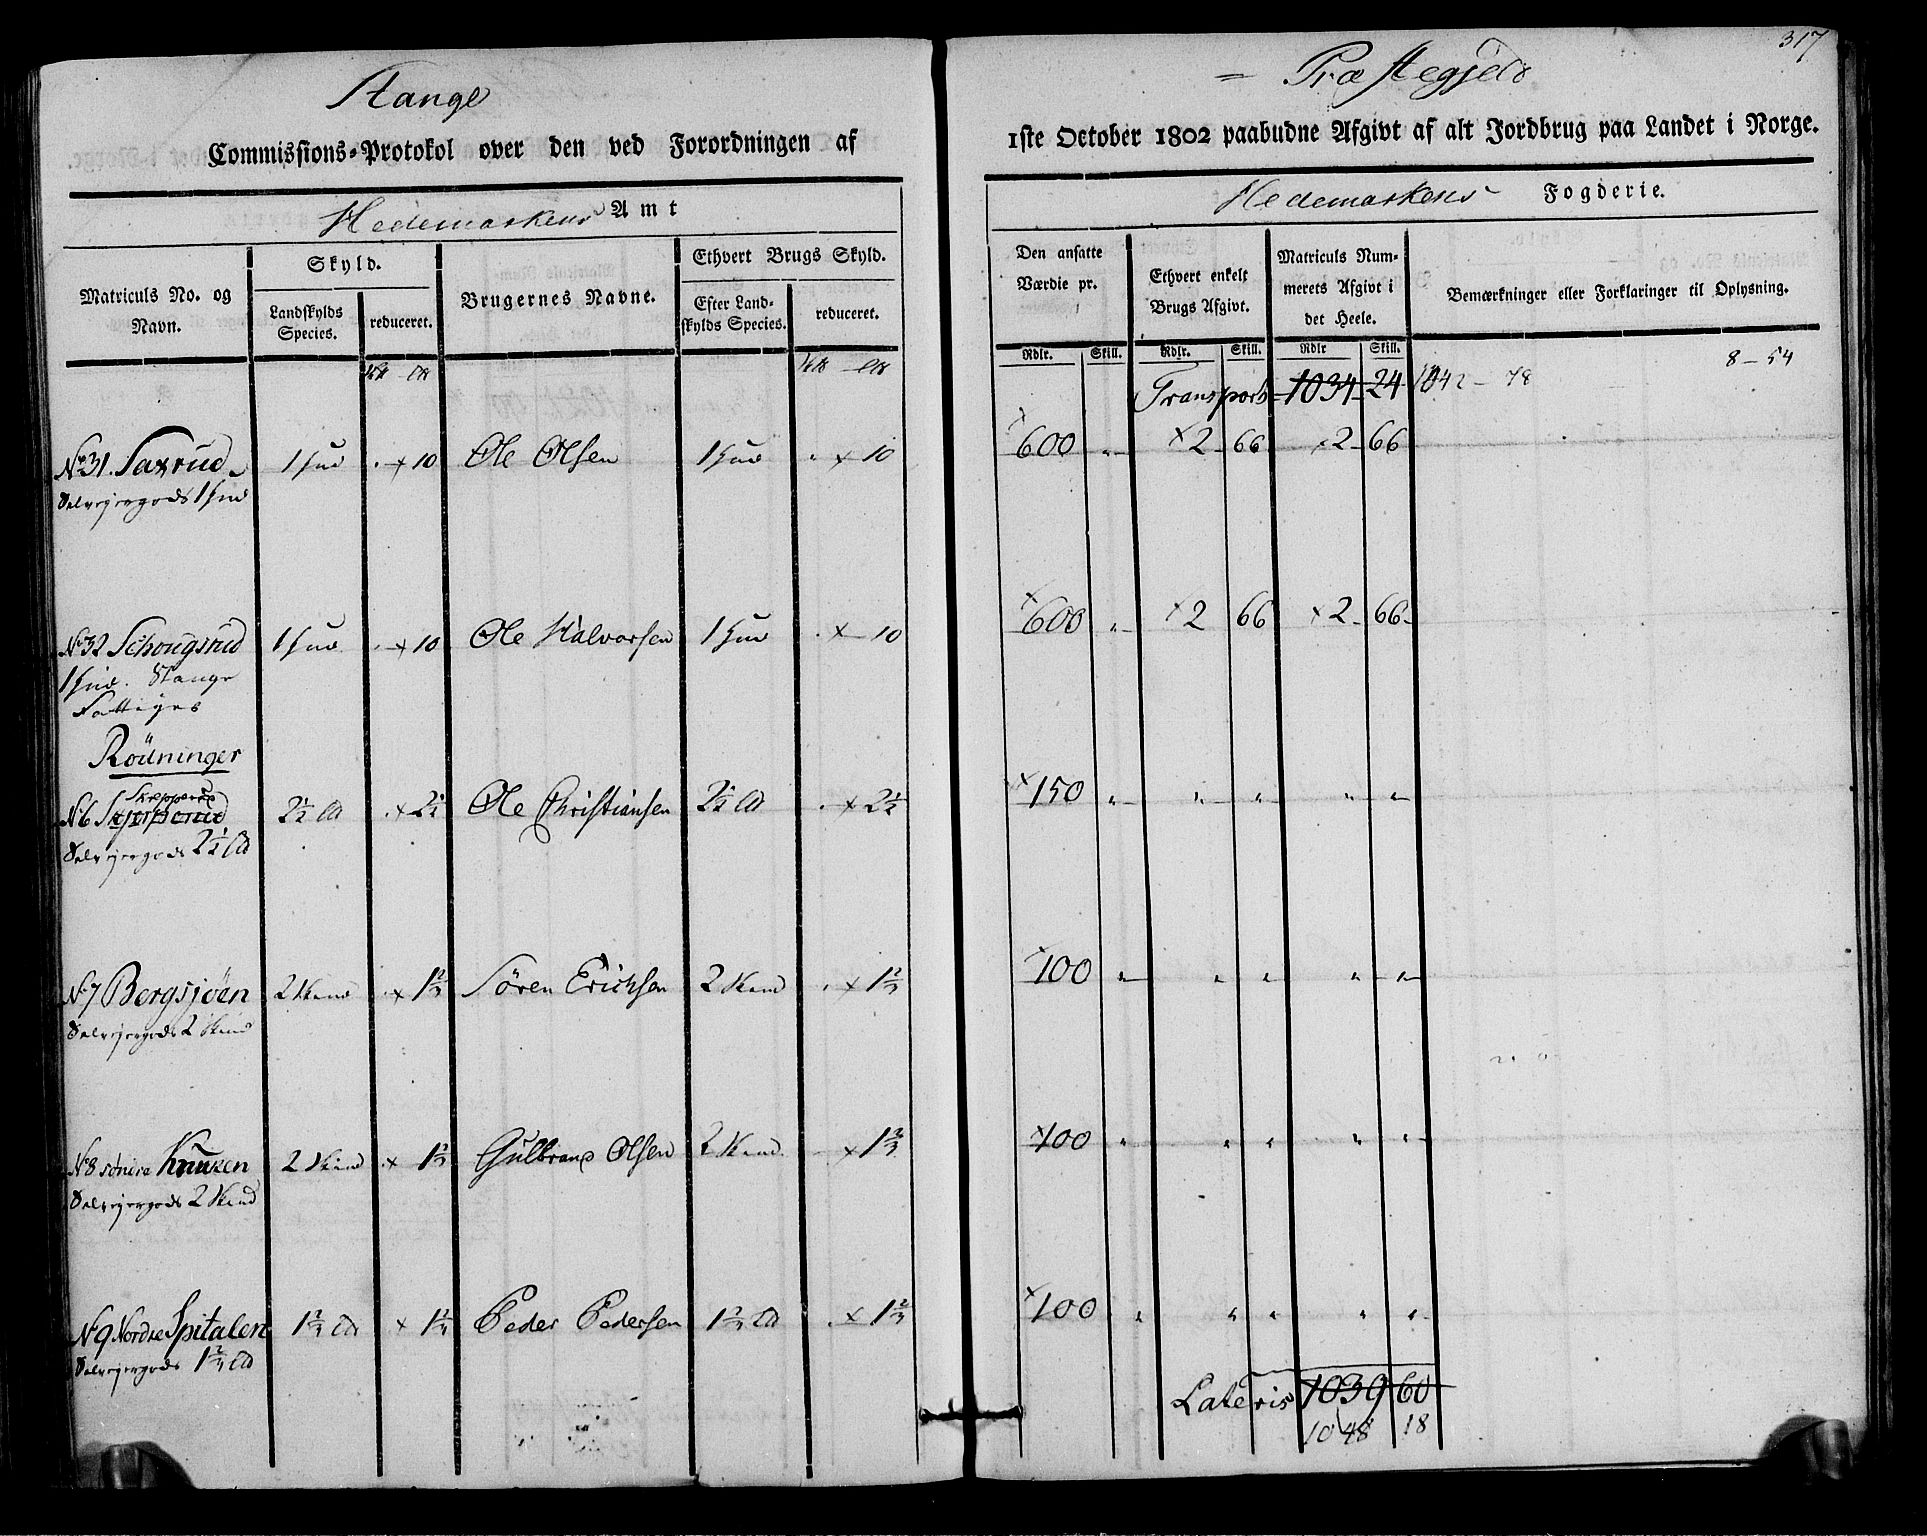 317
Stange = Præstegjeld
Commissions-Protokol over den ved Forordningen af 1ste October 1802 paabudne Afgivt af alt Jordbrug paa Landet i Norge.
Hedemarkens Amt Hedemarkens Fogderie.
Matriculs No. og Navn. Skyld. Brugernes Navne. Ethvert Brugs Skyld. Den ansatte Værdie pr. Ethvert enkelt Brugs Afgivt. Matriculs Nummerets Afgivt i det Heele. Bemærkninger eller Forklaringer til Oplysning.
Landskylds Species. reduceret. Efter Landskylds Species. reduceret.
Rdlr. Skill. Rdlr. Skill. Rdlr Skill.
Transport 1034 24 1042 - 78 8 - 54
No 31. Saxrud 1 Hud × 10 Ole Olsen 1 Hud × 10 600 " × 2 66 × 2 66
Selvejergods 1 Hud
No 32 Schougsrud 1 Hud × 10 Ole Halvorsen 1 Hud × 10 × 600 " × 2 66 × 2 66
1 Hud. Stange
Fattiges
Rödninger
Skepperud
No 6 2½ × 2½ Ole Christiansen 2½ × 2½ × 150 " " " " "
Selvejergods 2½
No 7 Bergsjöen 2 Skind × 1⅔ Sören Erichsen 2 Skind × 1⅔ × 100 " " " " "
Selvejergods 2 Skind
No 8 søndre Knuken 2 Skind × 1⅔ Gulbrand Olsen 2 Skind × 1⅔ × 100 " " " " "
Selvejergods 2 Skind
No 9 Nordre Spitalen 1⅔ × 1⅔ Peder Pedersen 1⅔ × 1⅔ × 100 " " " " "
Selvejergods 1⅔
Lateris 1039 60
1048 18